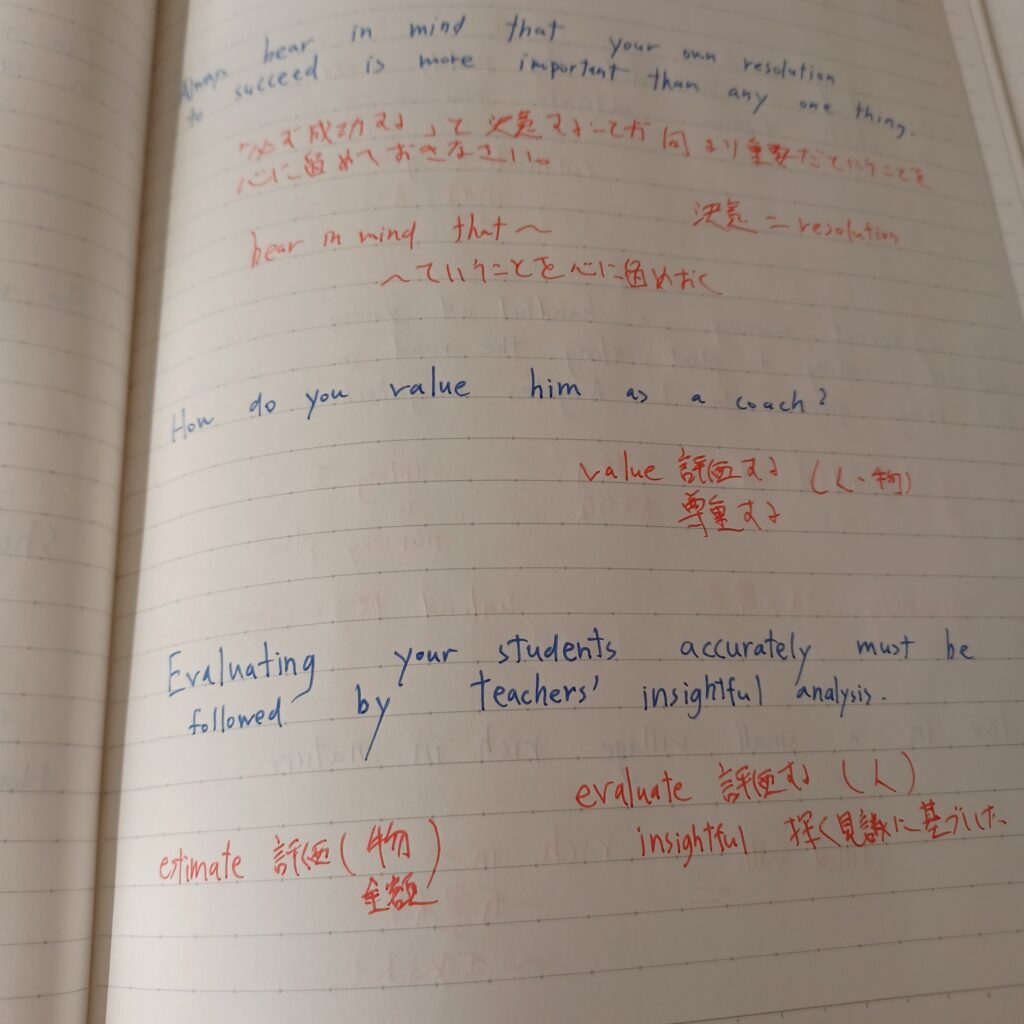 Always bear in mind that your own resolution
to succeed is more important than any one thing.
「必ず成功する」って決意することが何より重要だていうことを
心に留めておきなさい。
決意 = resolution
bear in mind that ~
~ていうことを心に留めおく
How do you value him as a coach?
value 評価する (人・物)
尊重する
Evaluating your students accurately must be
followed by teachers' insightful analysis.
evaluate 評価する (人)
insightful 深く見識に基づいた
estimate 評価 (物)
金額